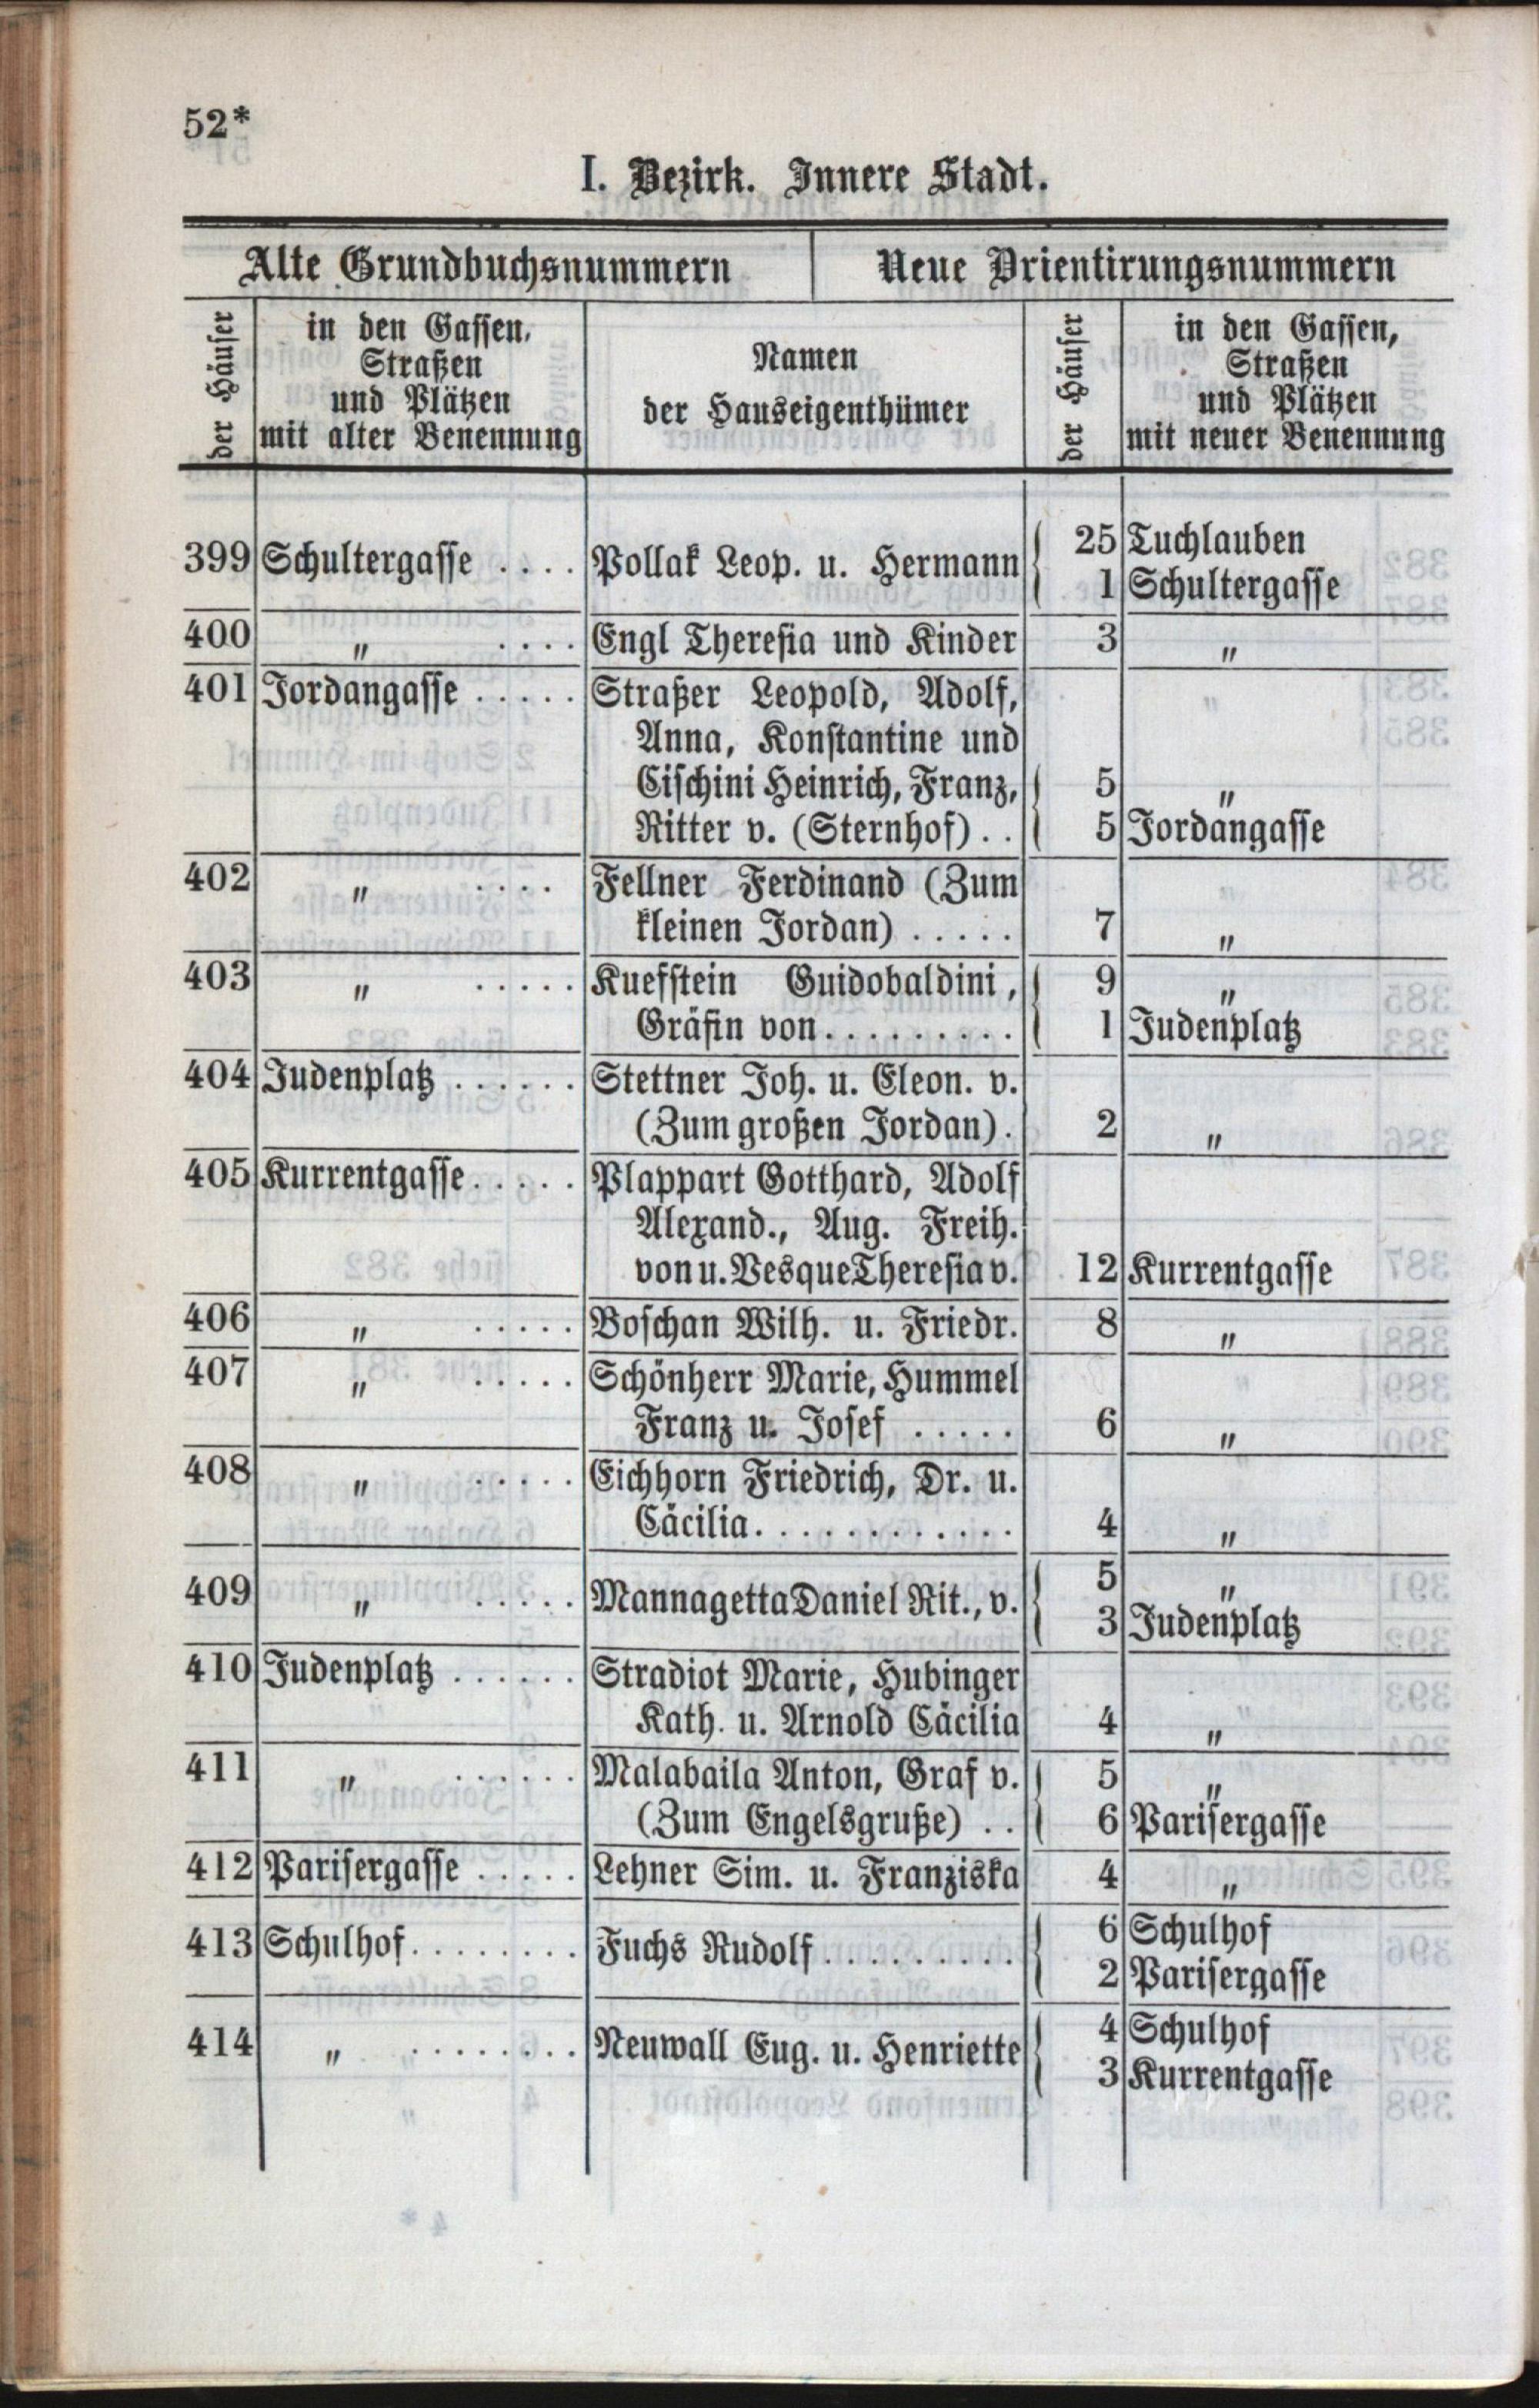 52*
I. Bezirk. Innere Stadt.
Alte Grundbuchsnummern Neue Orientirungsnummern
der Häuser
in den Gassen,
Straßen
und Plätzen
mit alter Benennung
Namen
der Hauseigenthümer
der Häuser
in den Gassen,
Straßen
und Plätzen
mit neuer Benennung
399 Schultergasse .... Pollak Leop. u. Hermann { 25 Tuchlauben
1 Schultergasse
400 „ .... Engl Theresia und Kinder 3 „
401 Jordangasse ..... Straßer Leopold, Adolf,
Anna, Konstantine und
Cischini Heinrich, Franz, { 5 „
Ritter v. (Sternhof) .. 5 Jordangasse
402 „ .... Fellner Ferdinand (Zum
kleinen Jordan) ..... 7 „
403 „ ..... Kuefstein Guidobaldini, { 9 „
Gräfin von......... 1 Judenplatz
404 Judenplatz ...... Stettner Joh. u. Eleon. v.
(Zum großen Jordan). 2 „
405 Kurrentgasse..... Plappart Gotthard, Adolf
Alexand., Aug. Freih.
von u. Vesque Theresia v. 12 Kurrentgasse
406 „ ..... Boschan Wilh. u. Friedr. 8 „
407 „ ..... Schönherr Marie, Hummel
Franz u. Josef ..... 6 „
408 „ ..... Eichhorn Friedrich, Dr. u.
Cäcilia............ 4 „
409 „ ..... Mannagetta Daniel Rit., v. { 5 „
3 Judenplatz
410 Judenplatz ...... Stradiot Marie, Hubinger
Kath. u. Arnold Cäcilia 4 „
411 „ ...... Malabaila Anton, Graf v. { 5 „
(Zum Engelsgruße) .. 6 Parisergasse
412 Parisergasse ..... Lehner Sim. u. Franziska 4 „
413 Schulhof........ Fuchs Rudolf......... { 6 Schulhof
2 Parisergasse
414 „ ........ Neuwall Eug. u. Henriette { 4 Schulhof
3 Kurrentgasse